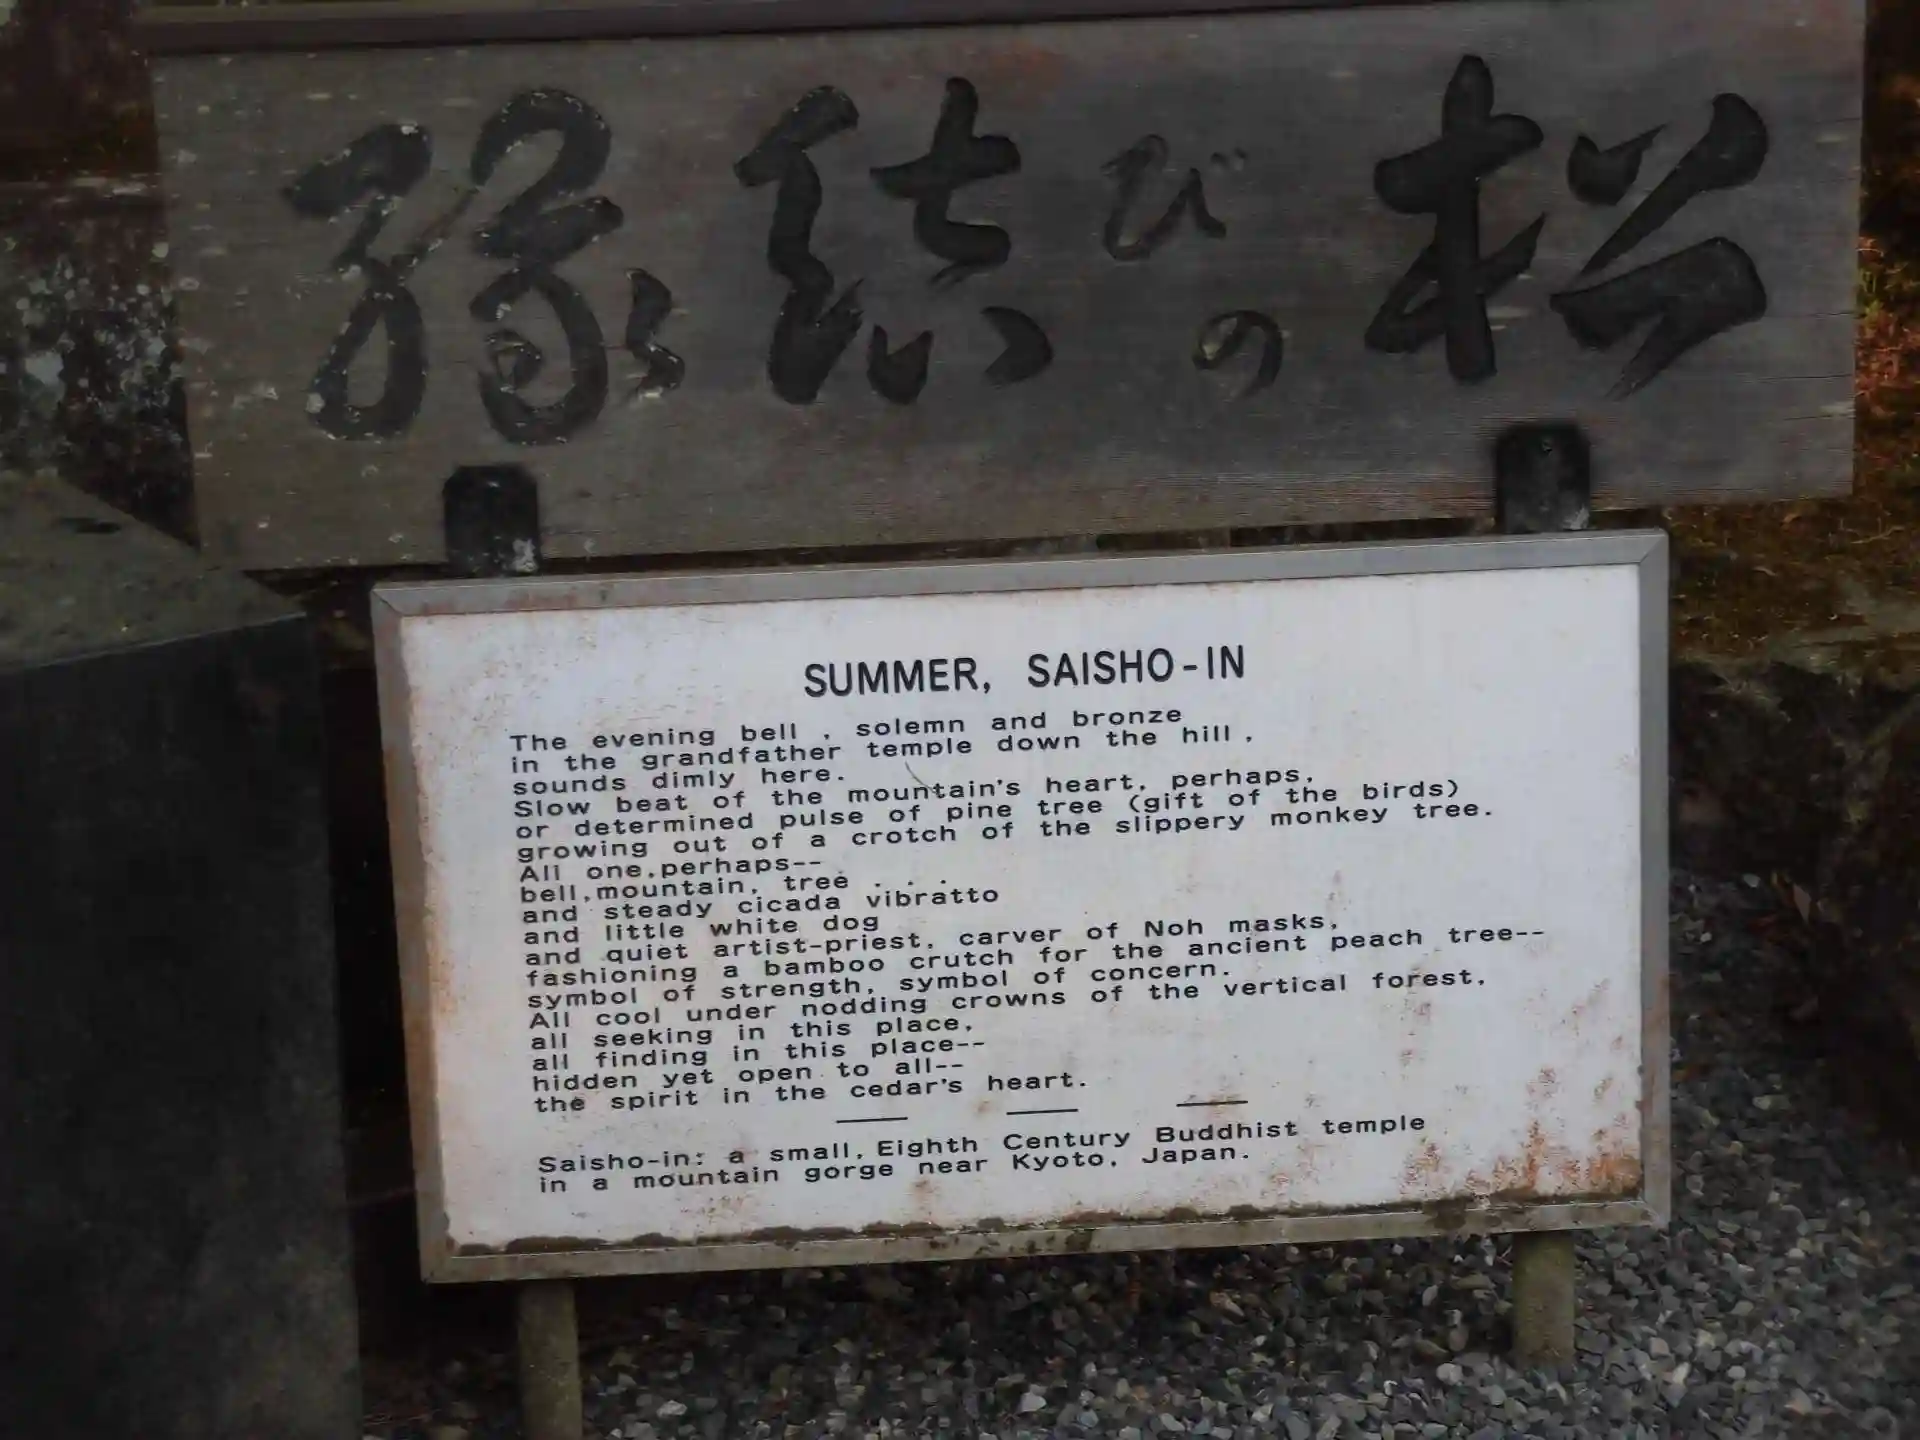 縁結びの松
SUMMER, SAISHO-IN
The evening bell , solemn and bronze
in the grandfather temple down the hill ,
sounds dimly here.
Slow beat of the mountain's heart, perhaps,
or determined pulse of pine tree (gift of the birds)
growing out of a crotch of the slippery monkey tree.
All one,perhaps--
bell,mountain, tree . . .
and steady cicada vibratto
and little white dog
and quiet artist-priest, carver of Noh masks,
fashioning a bamboo crutch for the ancient peach tree--
symbol of strength, symbol of concern.
All cool under nodding crowns of the vertical forest,
all seeking in this place,
all finding in this place--
hidden yet open to all--
the spirit in the cedar's heart.
Saisho-in: a small, Eighth Century Buddhist temple
in a mountain gorge near Kyoto, Japan.